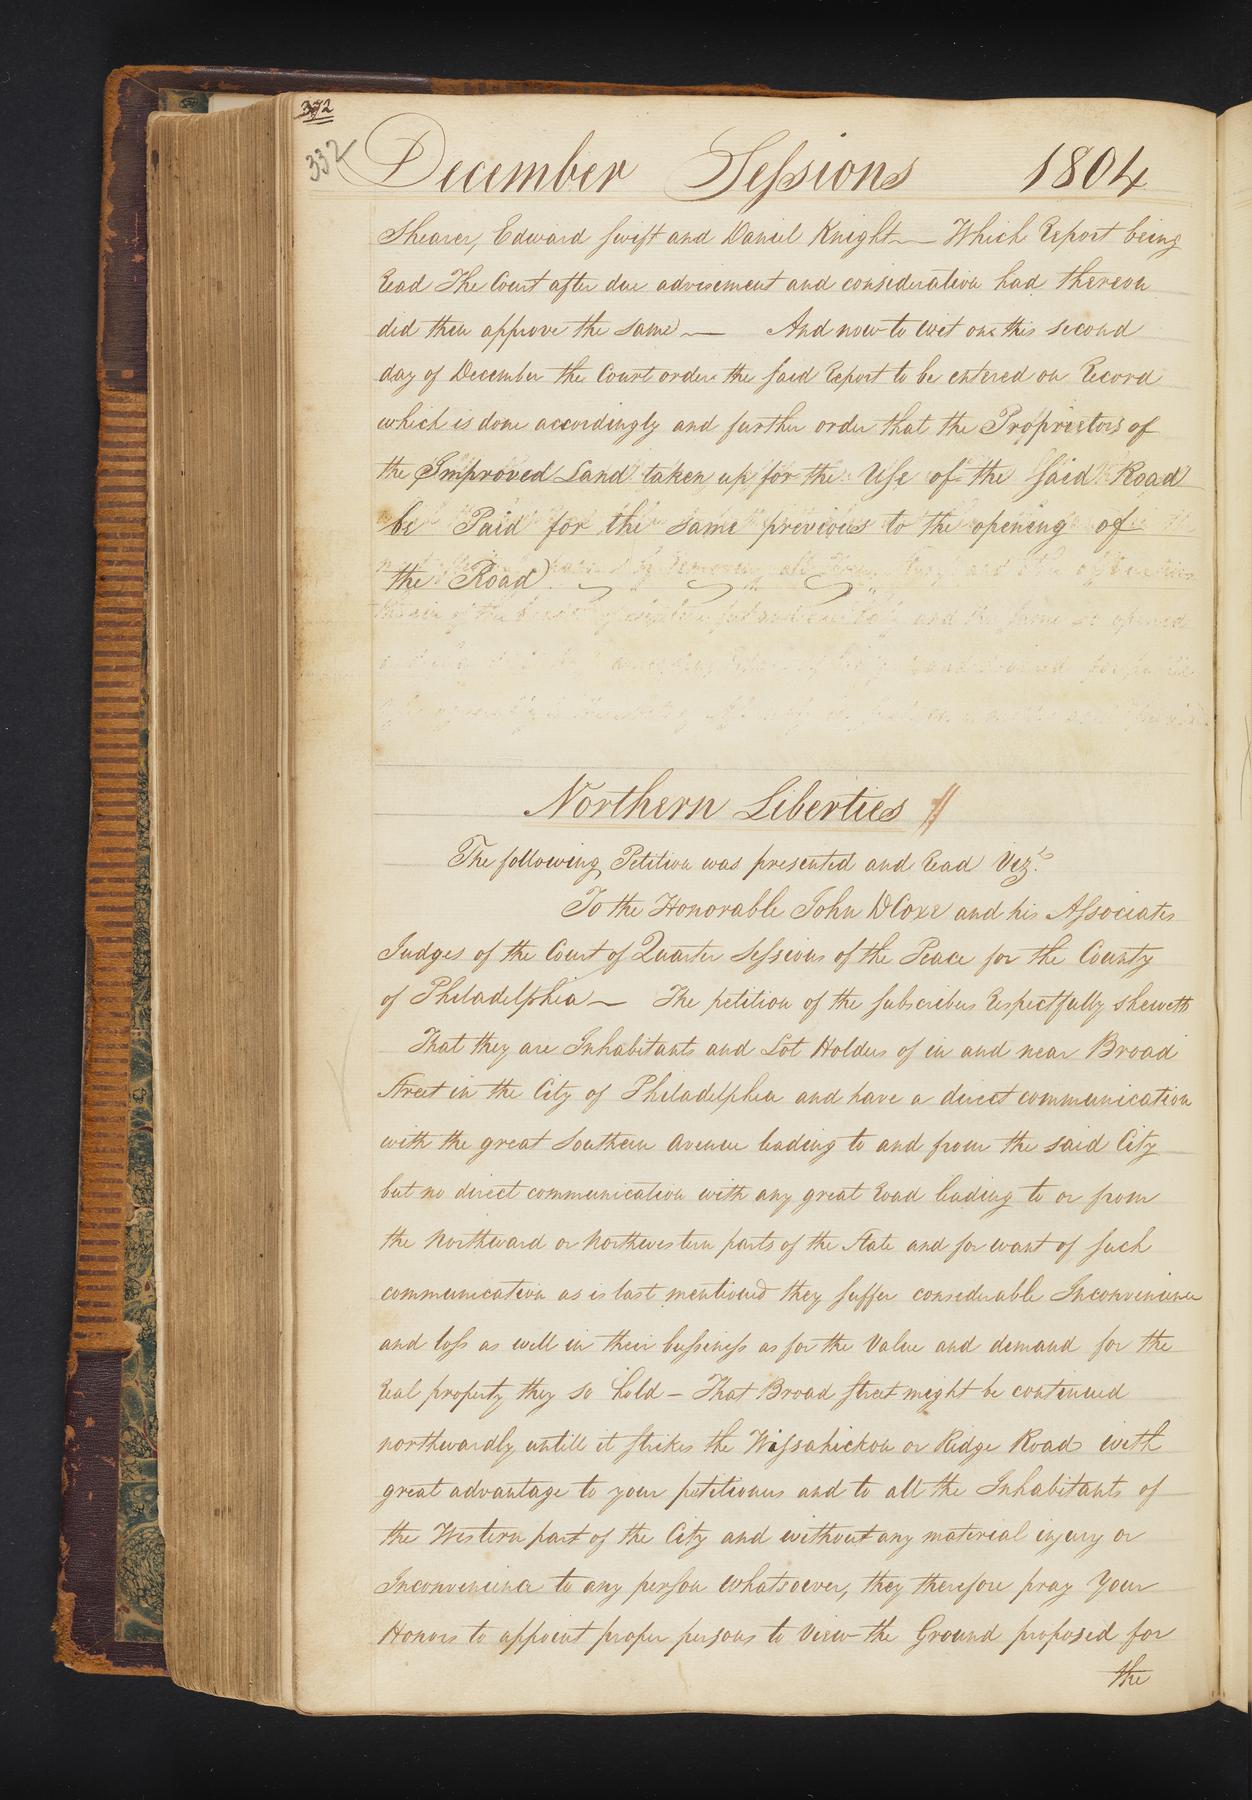 372
332
December Sessions 1804
Shearer, Edward Swift and Daniel Knight — Which Report being
Read The Court after due advisement and consideration had thereon
did then approve the same — And now to wit on this second
day of December the Court orders the said Report to be entered on Record
which is done accordingly and further order that the Proprietors of
the Improved Land taken up for the Use of the said Road
be Paid for the same previous to the opening of
the Road
Northern Liberties
The following Petition was presented and Read Vizt.
To the Honorable John D Coxe and his Associates
Judges of the Court of Quarter Sessions of the Peace for the County
of Philadelphia — The petition of the subscribers Respectfully sheweth
That they are Inhabitants and Lot Holders of in and near Broad
Street in the City of Philadelphia and have a direct communication
with the great Southern Avenue leading to and from the said City
but no direct communication with any great Road leading to or from
the Northward or Northwestern parts of the State and for want of such
communication as is last mentioned they suffer considerable Inconvenience
and loss as well in their bussiness as for the Value and demand for the
Real property they so hold — That Broad street might be continued
northwardly untill it strikes the Wissahickon or Ridge Road with
great advantage to your petitioners and to all the Inhabitants of
the Western part of the City and without any material injury or
Inconvenience to any person whatsoever, they therefore pray Your
Honors to appoint proper persons to View the Ground proposed for
the